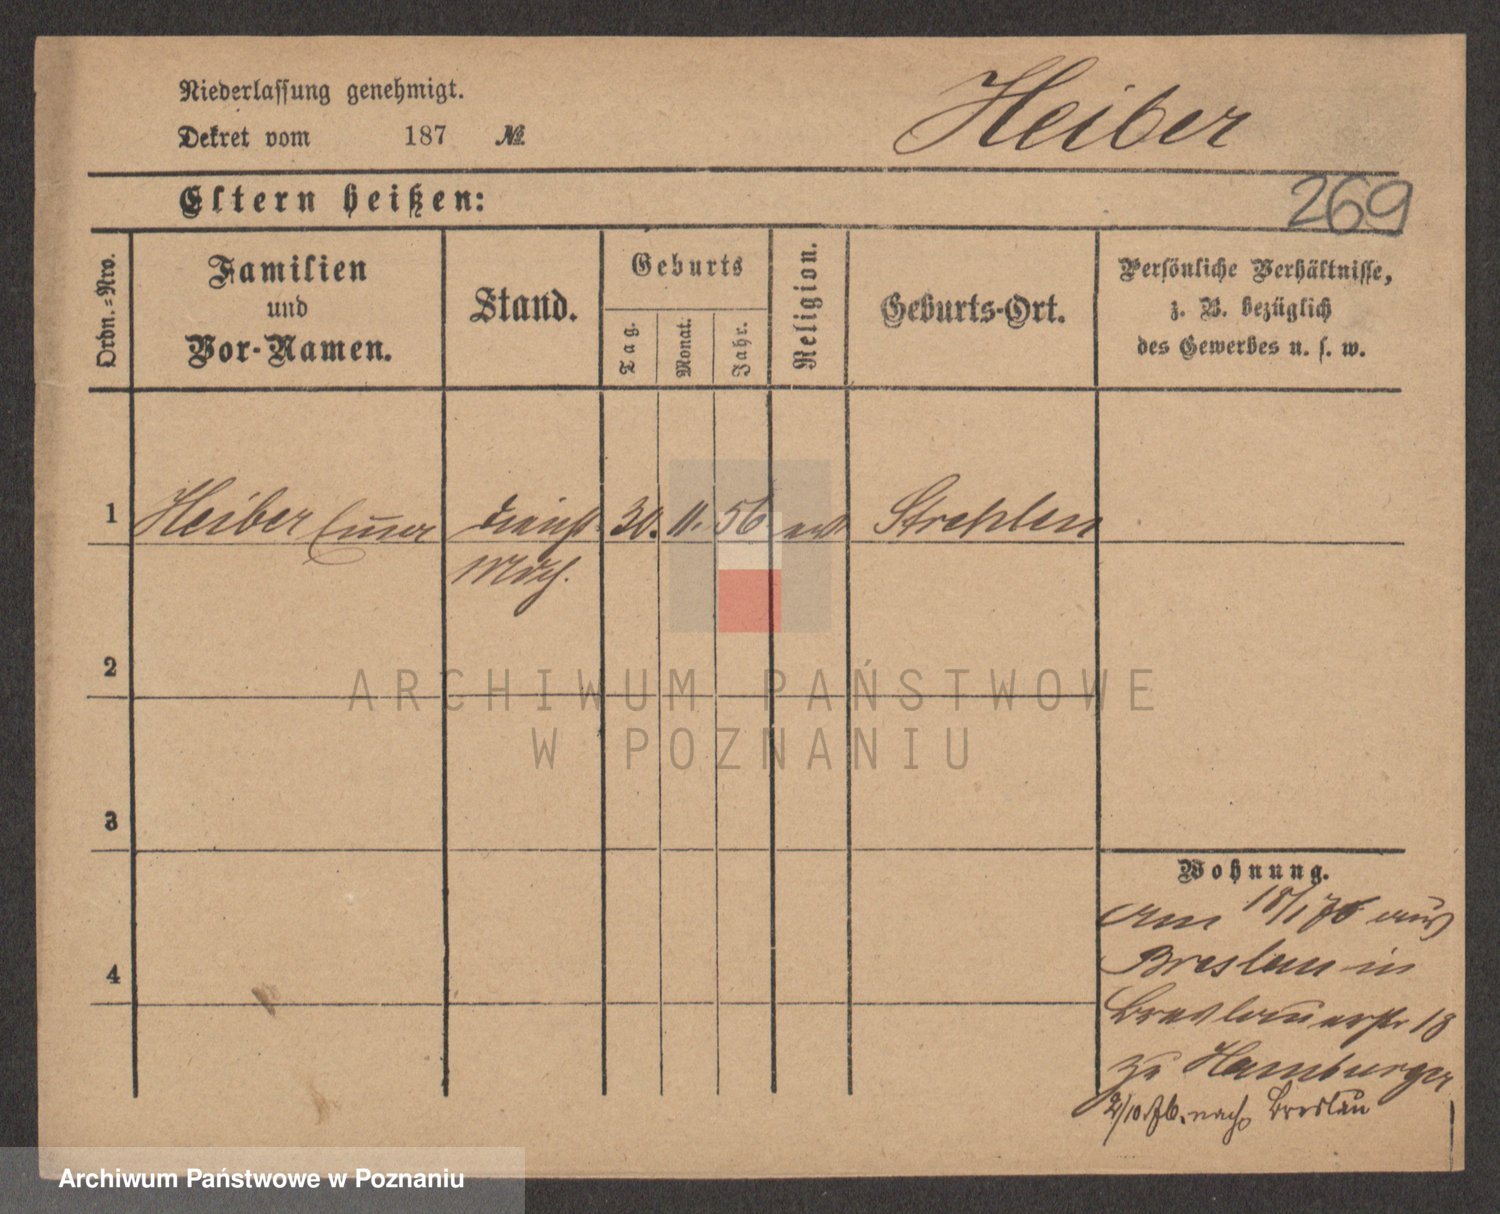 Niederlassung genehmigt.
Heiber
Dekret vom 187 №
269
Eltern heißen:
Ordn.=Nro.
Familien
und
Vor-Namen.
Stand.
Geburts
Tag.
Monat.
Jahr.
Religion.
Geburts-Ort.
Persönliche Verhältnisse,
z. B. bezüglich
des Gewerbes u. s. w.
1 Heiber Dienst 30. 11. 56 Strehlen
Mdch.
2
3
4
Wohnung.
am 18/1 76 aus
Breslau in
Breslauerstr 18
zu Hamburger
2/10.76. nach Breslau
ARCHIWUM PAŃSTWOWE
W POZNANIU
Archiwum Państwowe w Poznaniu